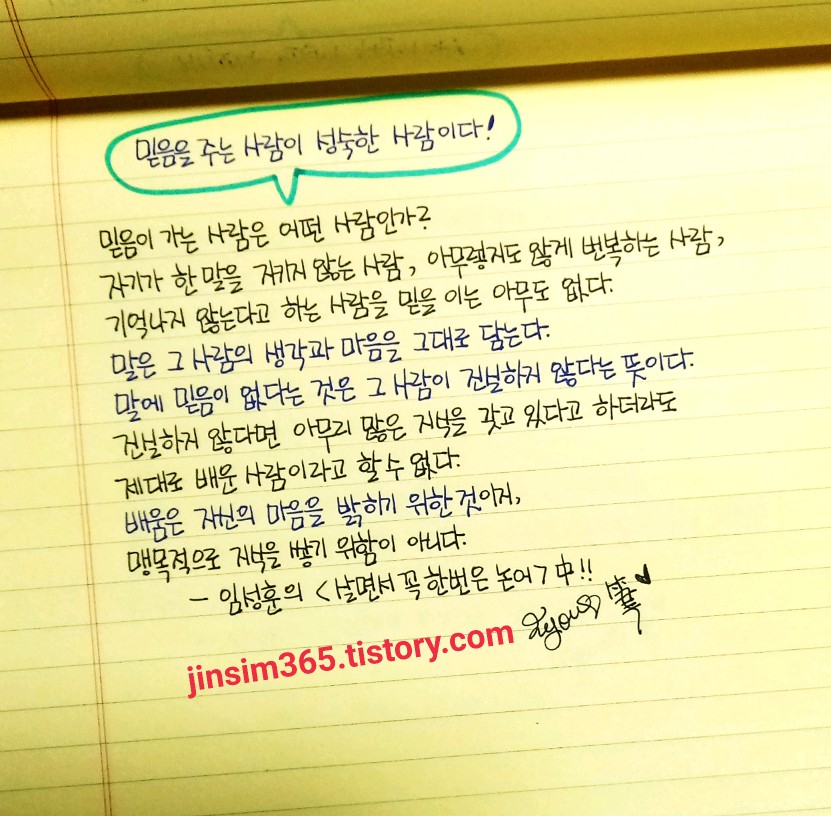 믿음을 주는 사람이 성숙한 사람이다!
믿음이 가는 사람은 어떤 사람인가?
자기가 한 말을 지키지 않는 사람, 아무렇지도 않게 번복하는 사람,
기억나지 않는다고 하는 사람을 믿을 이는 아무도 없다.
말은 그 사람의 생각과 마음을 그대로 담는다.
말에 믿음이 없다는 것은 그 사람이 진실하지 않다는 뜻이다.
진실하지 않다면 아무리 많은 지식을 갖고 있다고 하더라도
제대로 배운 사람이라고 할 수 없다.
배움은 자신의 마음을 밝히기 위한 것이지,
맹목적으로 지식을 쌓기 위함이 아니다.
- 임성훈의 <살면서 꼭 한번은 논어> 中!!
jinsim365.tistory.com